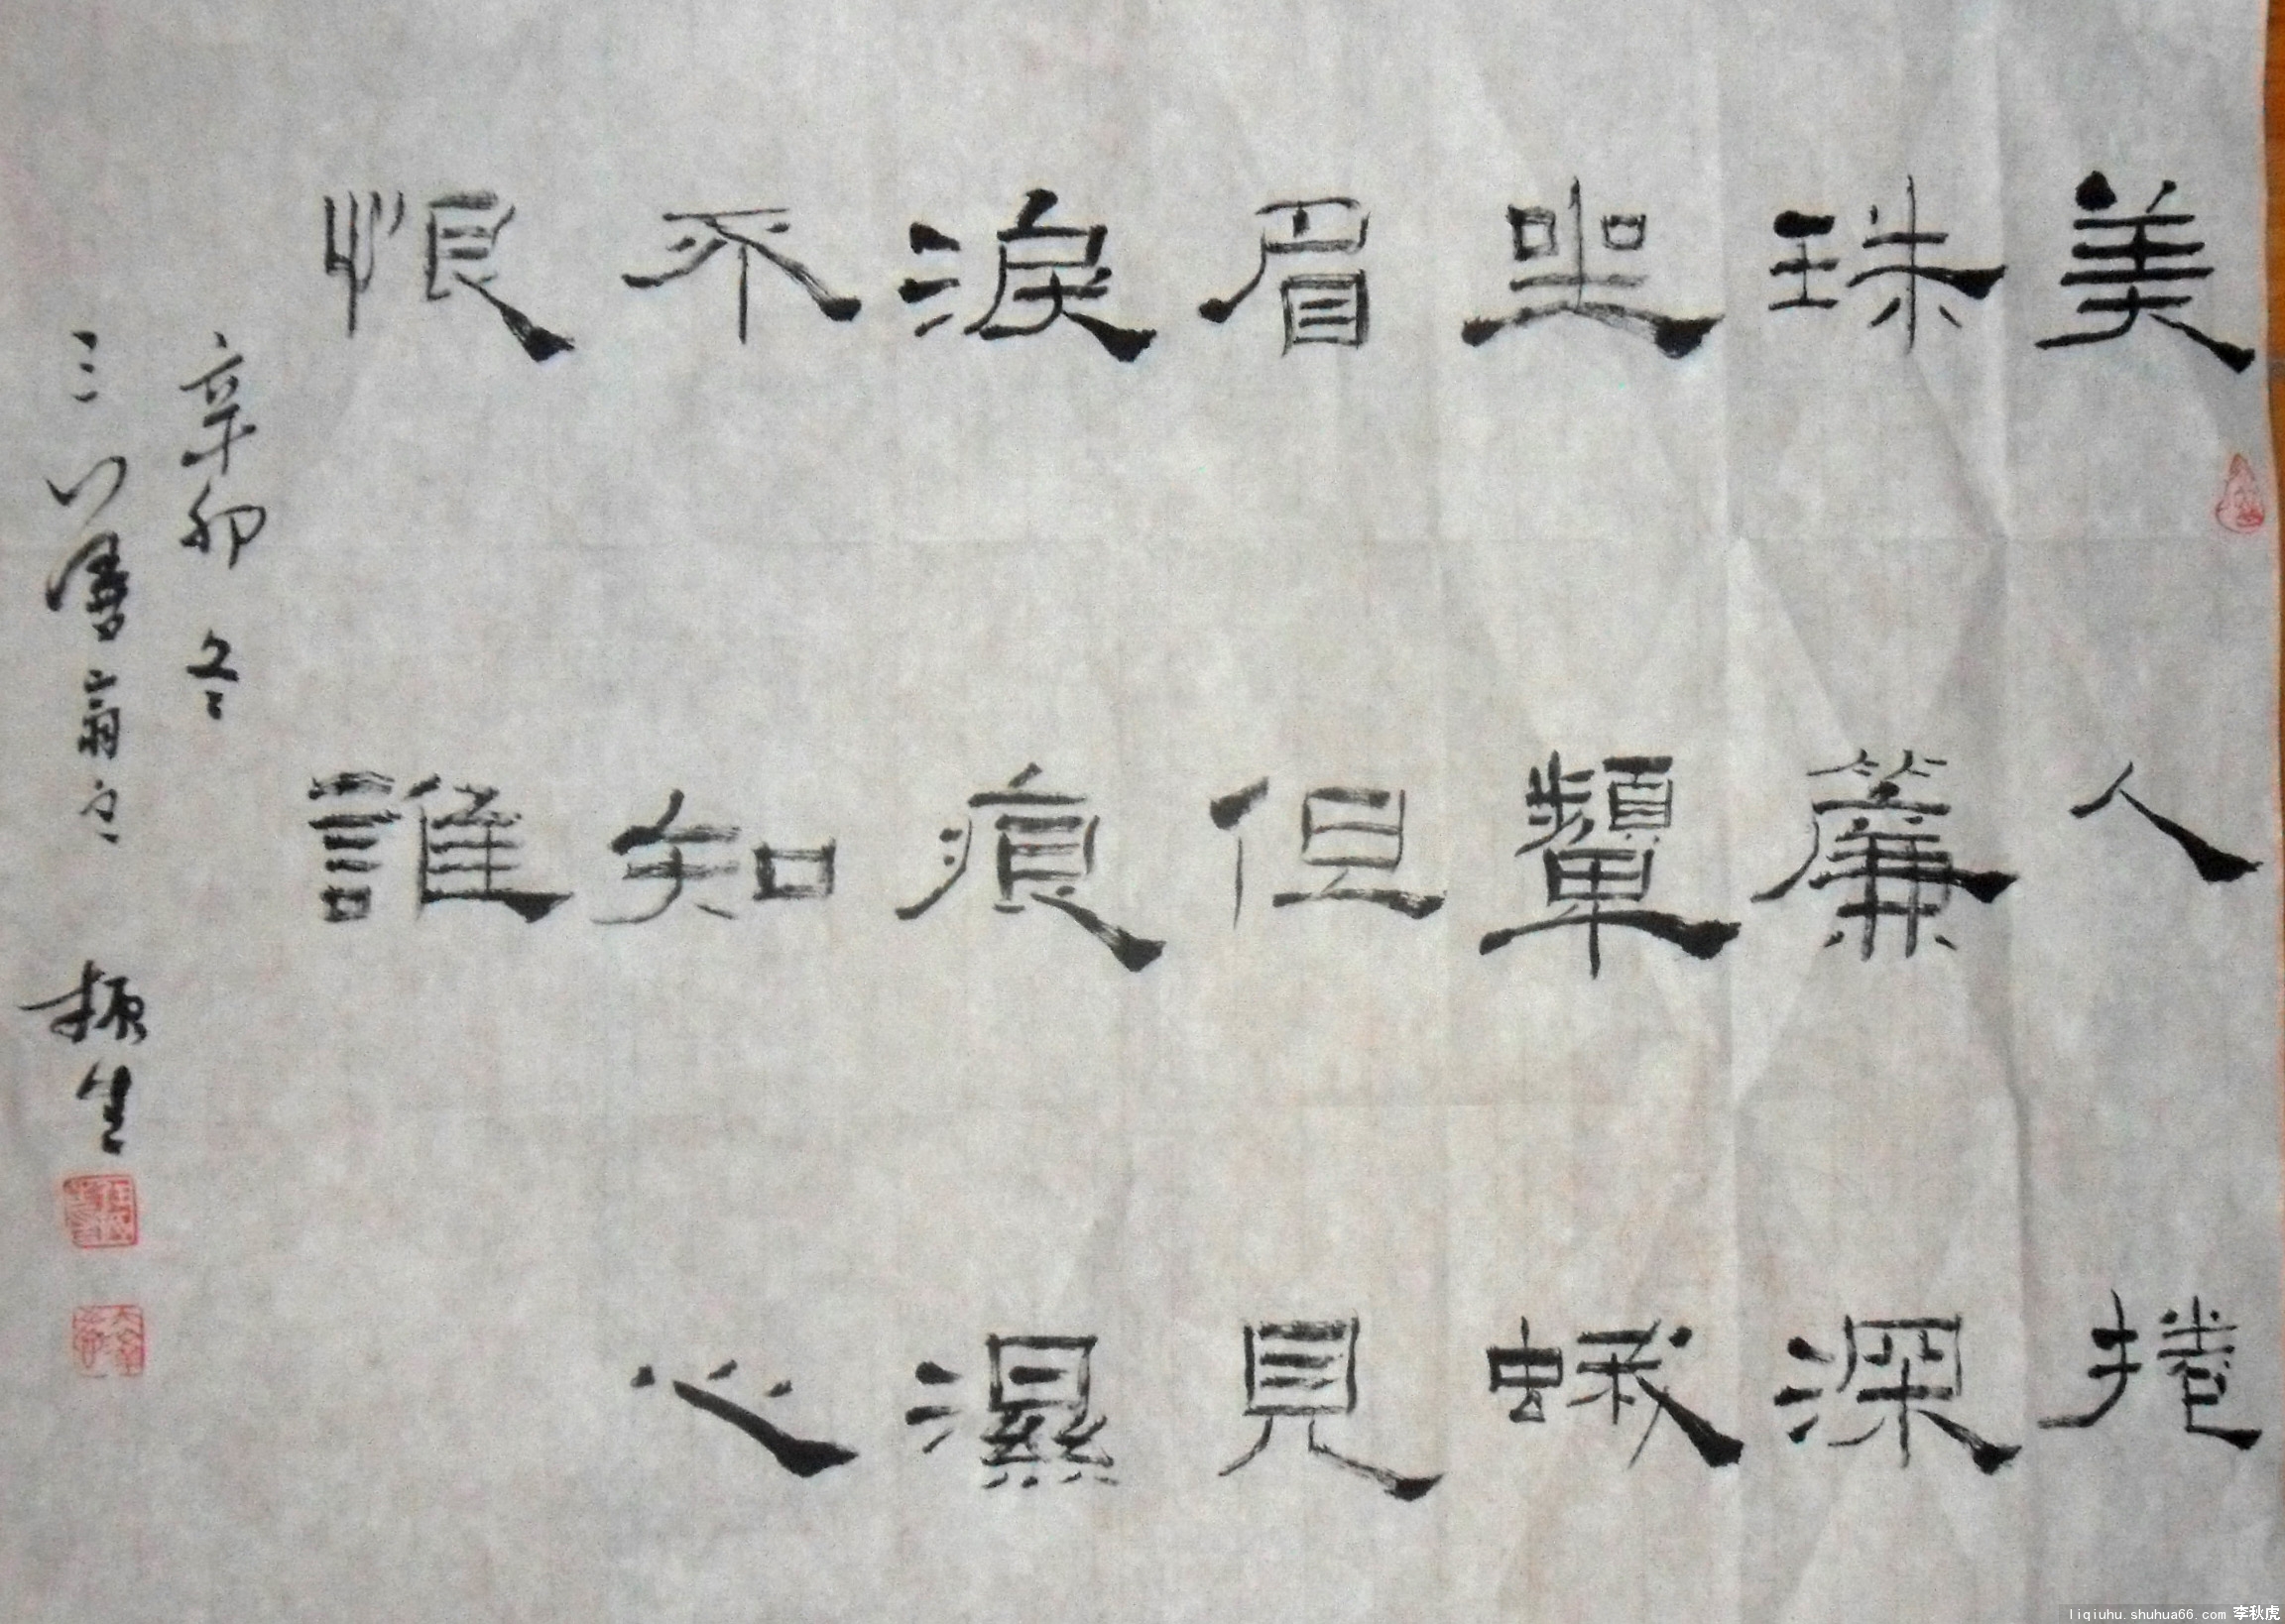 美人捲
珠簾深
坐顰蛾
眉但見
淚痕濕
不知心
恨誰
辛卯冬
振生
liqiuhu.shuhua66.com 李秋虎